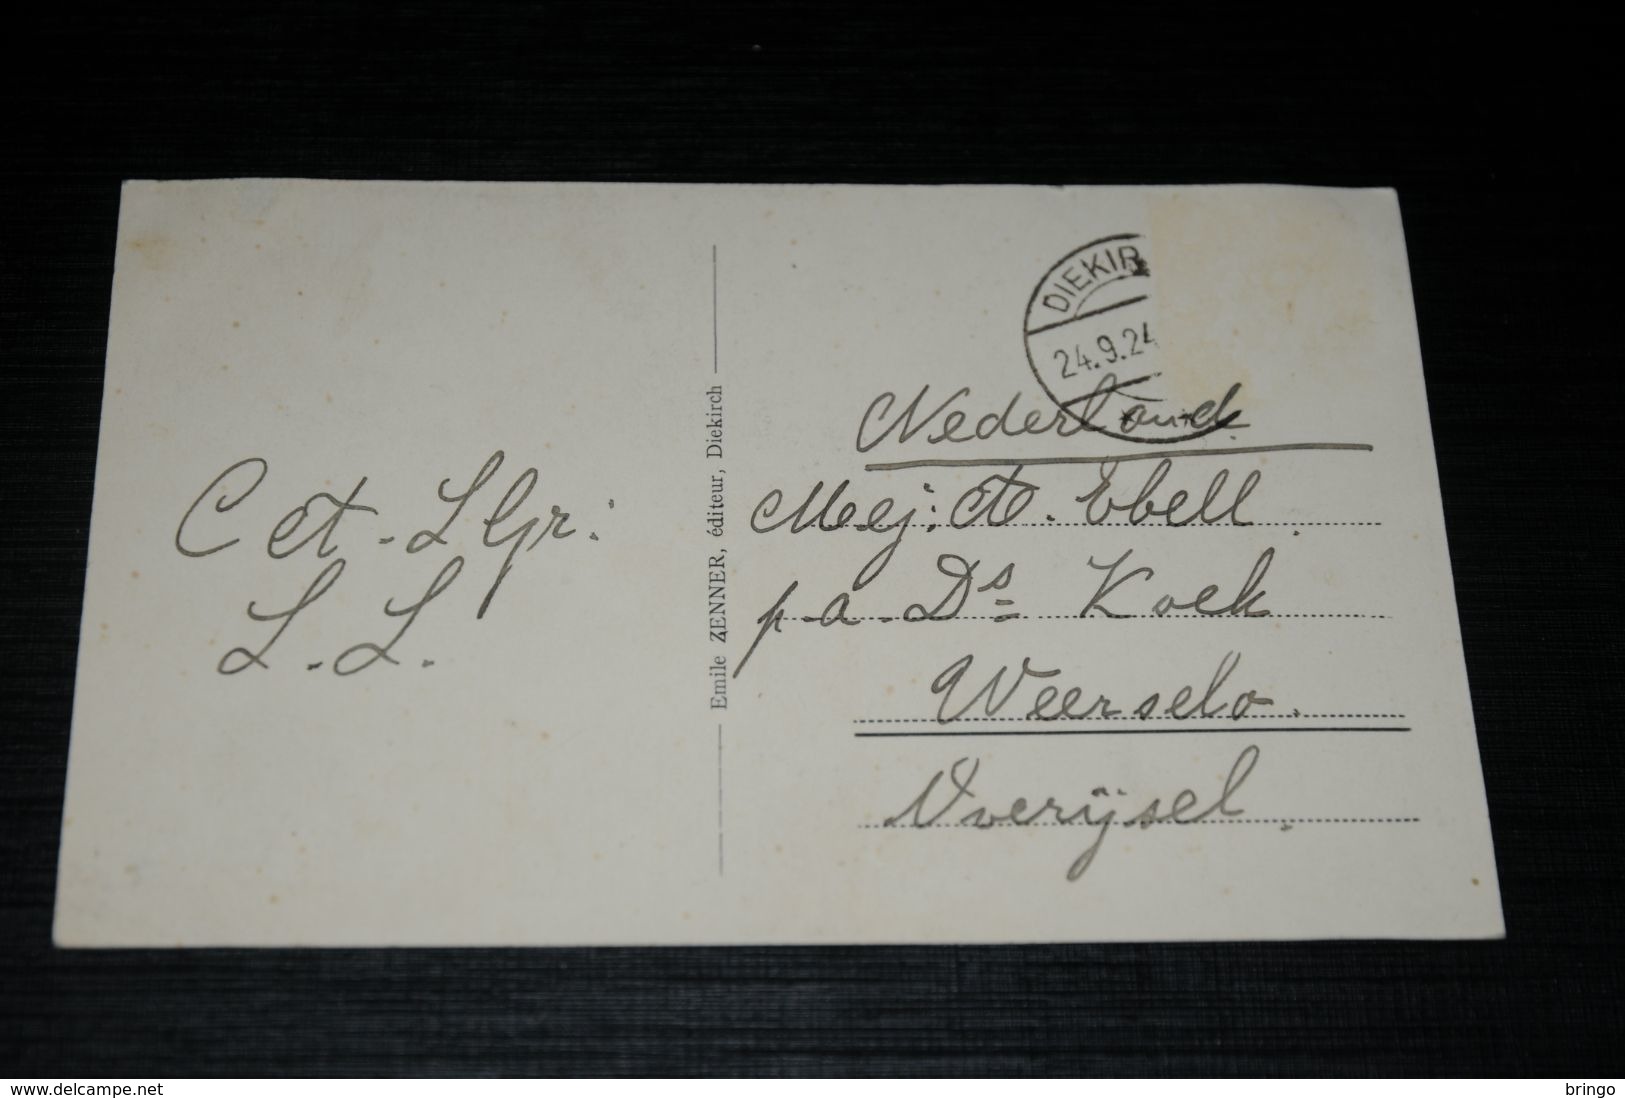 DIEKIR
24.9.24
Nederland
Mej. A. Ebell.
p.a. Ds Koek
Weerselo.
Overijsel.
L. L.
Emile ZENNER, éditeur, Diekirch
www.delcampe.net
bringo